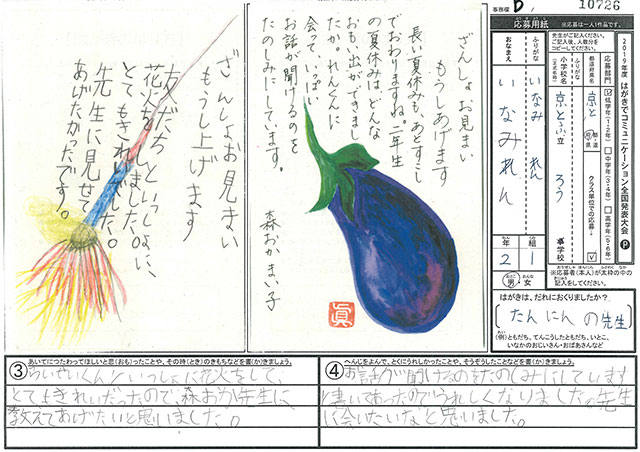 事務欄
D
10726
応募用紙
※応募は一人1作品です。
2019年度 はがきでコミュニケーション全国発表大会 P
先生がご記入ください。
ご記入後、人数分を
コピーしてください。
応募部門
低学年(1・2年)
中学年(3・4年)
高学年(5・6年)
都道府県名
京と
都・道
府・県
クラス単位での応募↓
ふりがな
小学校名
(正式名称)
京とふ立
ろう
学校
ふりがな
いなみ れん
おなまえ
いなみれん
年
2
組
1
男
女
※応募者(本人)が太枠の中の
記入をしてください。
はがきは、だれにおくりましたか?
たんにんの先生
(例)ともだち、てんこうしたともだち、いとこ、
いなかのおじいさん・おばあさんなど
ざんしょお見まい
もうしあげます
長い夏休みも、あとすこし
でおわりますね。二年生
の夏休みは、どんな
おもい出ができまし
たか。れんさんに
会って、いっぱい
お話が聞けるのを
たのしみにしています。
森おか まい子
眞
ざんしょお見まい
もうし上げます
友だちといっしょに、
花火をしました。
とてもきれいでした。
先生に見せて
あげたかったです。
③
あいてにつたわってほしいと思(おも)ったことや、その時(とき)のきもちなどを書(か)きましょう。
いっしょに花火をして、
とてもきれいだったので、森おか先生に
教えてあげたいと思いました。
④
へんじをよんで、とくにうれしかったことや、そうぞうしたことなどを書(か)きましょう。
お話が聞けるのをたのしみにしています
と書いてあったのでうれしくなりました。先生
に会いたいなと思いました。